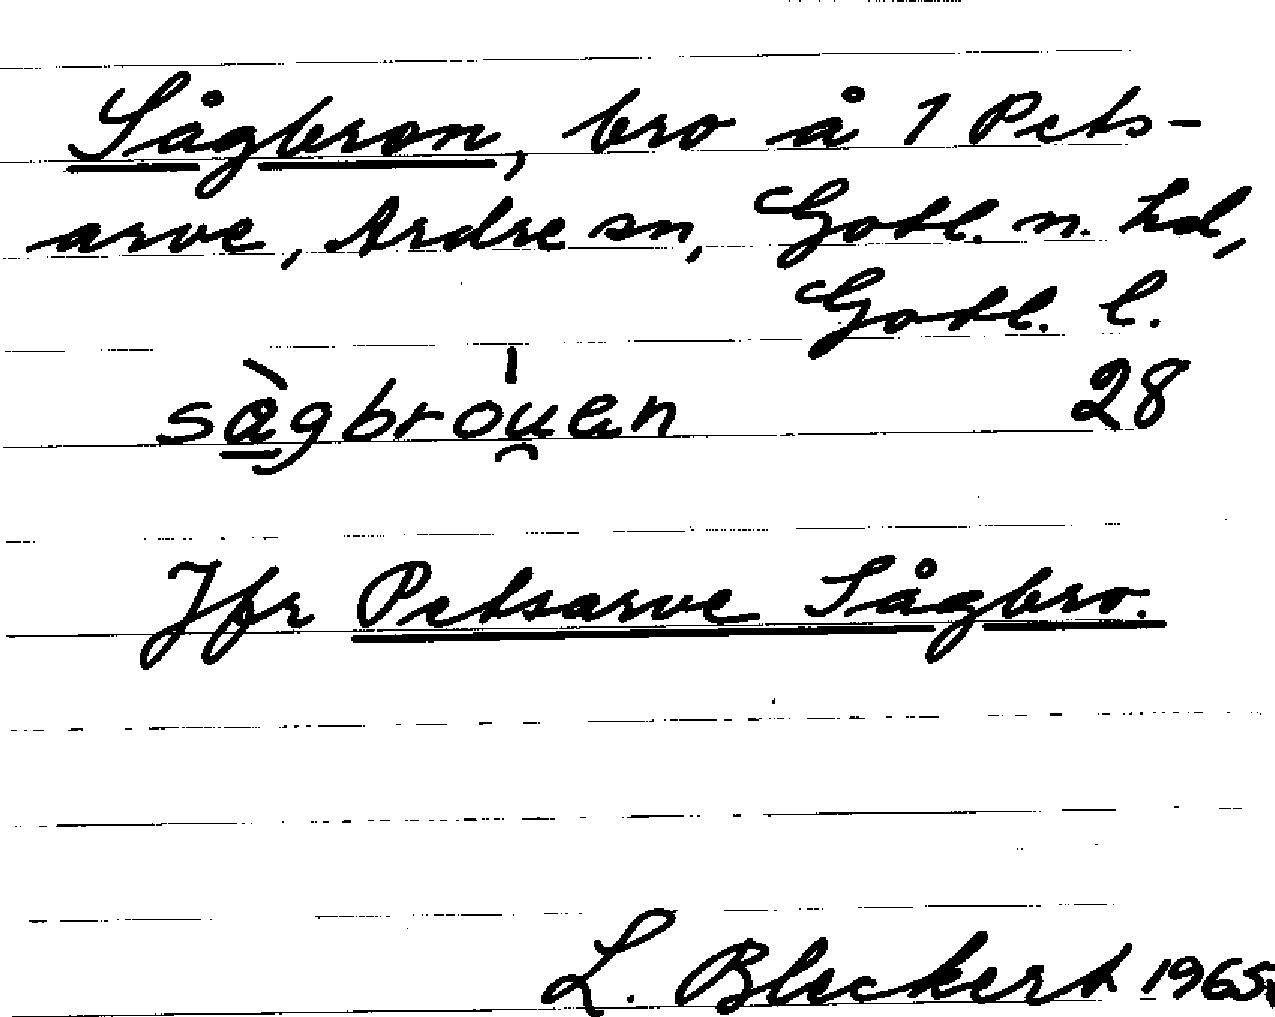 Sågbron, bro å 1 Pets-
arve, Ardre sn, Gotl. n. hd,
Gotl. l.
sàgbròu̯en 28
Jfr Petsarve Sågbro.
L. Bleckert 1965